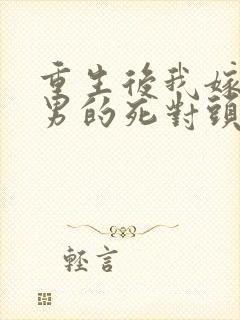 重生後我嫁
男的死對頭
輕言